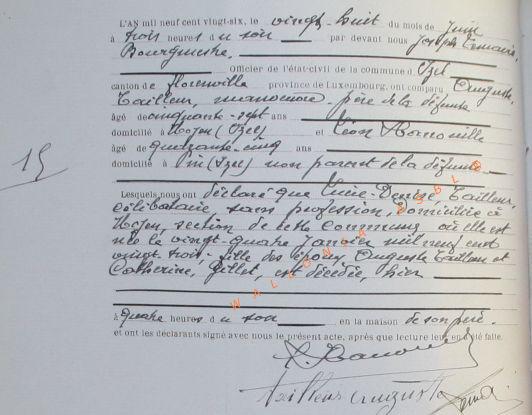 L'AN mil neuf cent vingt-six, le vingt-huit du mois de Juin
à trois heures du soir par devant nous Joseph Lemaire
Bourgmestre.
Officier de l'état-civil de la commune d'Izel
canton de Florenville province de Luxembourg, ont comparu Auguste
Tailleur, manoeuvre, père de la défunte
âgé de cinquante-sept ans
domicilié à Moyen (Izel) et Léon
âgé de quarante-cinq ans
domicilié à Pin (Izel) non parent de la défunte
15
Lesquels nous ont déclaré que Lucie-Denise, Tailleur,
célibataire, sans profession, domiciliée à
Moyen, section de cette commune, où elle est
née le vingt-quatre janvier mil neuf cent
vingt trois, fille des époux Auguste Tailleur et
Catherine, Gillet, est décédée, hier
à quatre heures du soir en la maison de son père.
et ont les déclarants signé avec nous le présent acte, après que lecture leur en a été faite.
Tailleur Auguste
WALLONIA